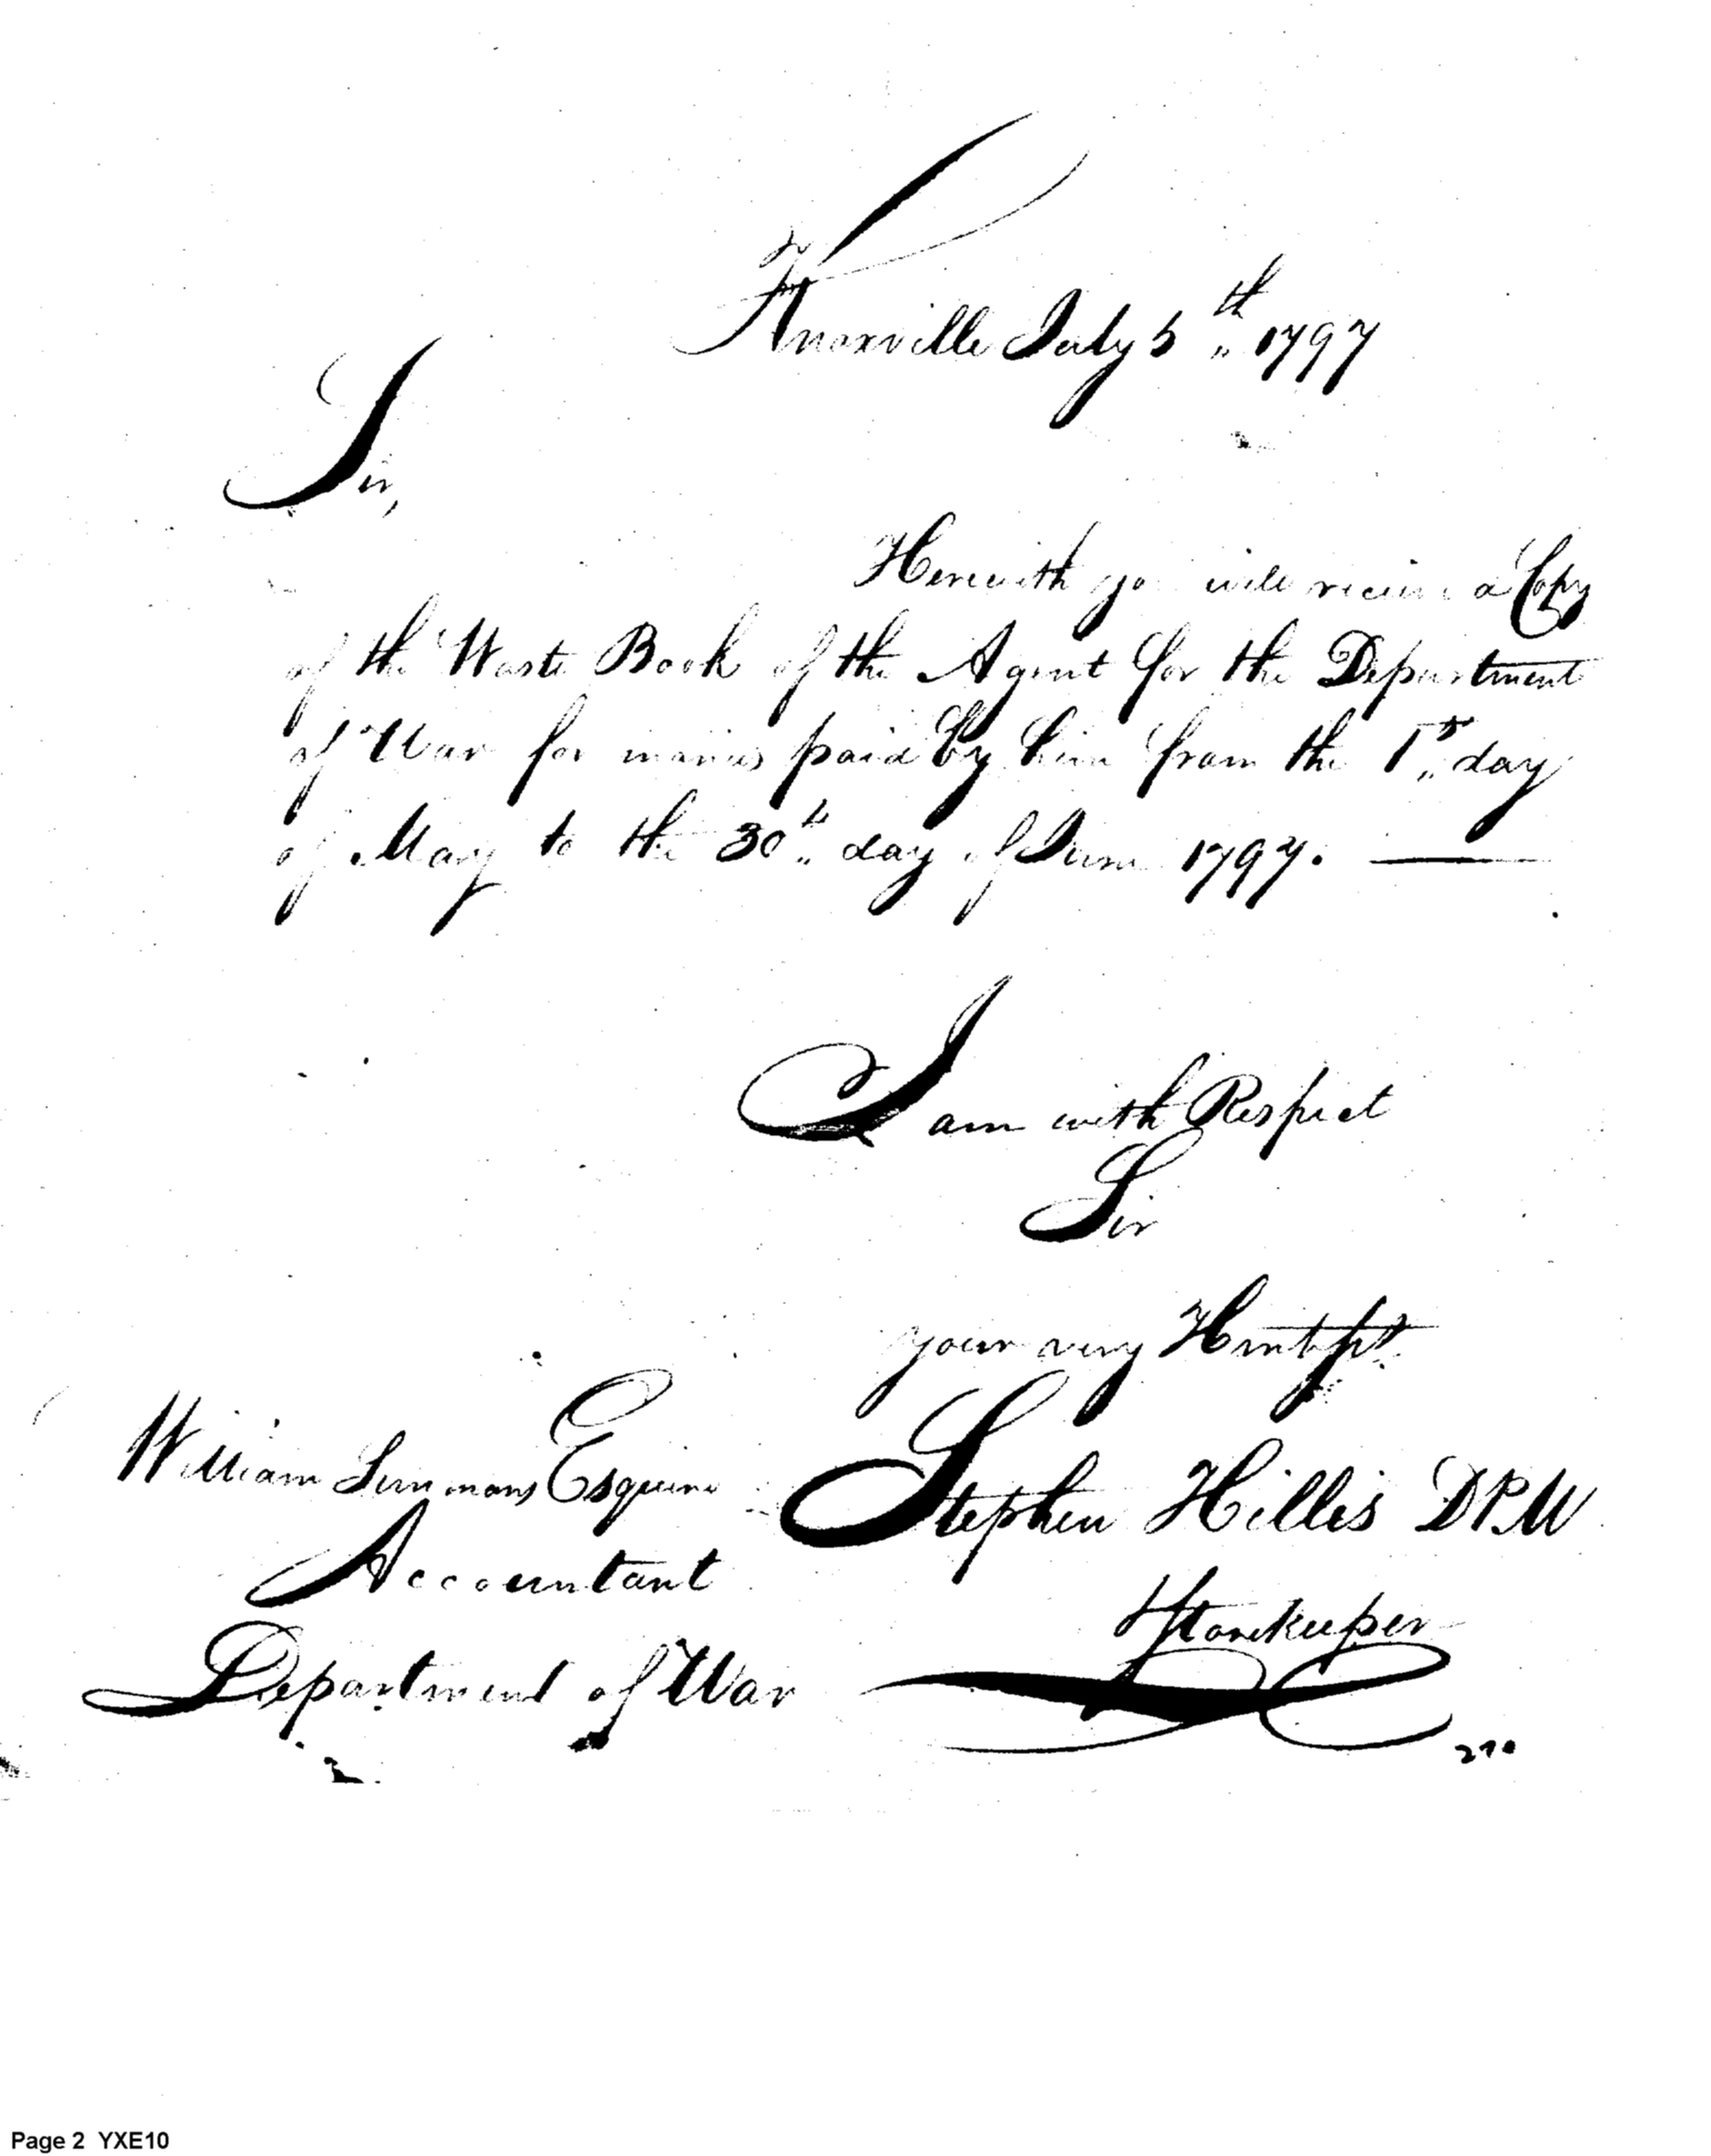 Knoxville July 5th 1797
Sir,
Herewith yo will receive a Copy
of the Waste Book of the Agent for the Department
of War for monies paid by him from the 1st day
of May to the 30th day of June 1797.
I am with Respect
Sir
your very Hmble St
William Simmons Esquire
Stephen Hillis DPM
Accountant
Storekeeper
Department of War
270
Page 2 YXE10